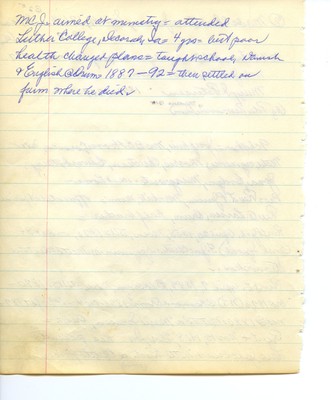 MCJ. aimed at ministry = attended
Luther College, Decorah, Ia = 4 yrs = but poor
health changed plans = taught school, Danish
& English 1887-92 = then settled on
farm where he died.